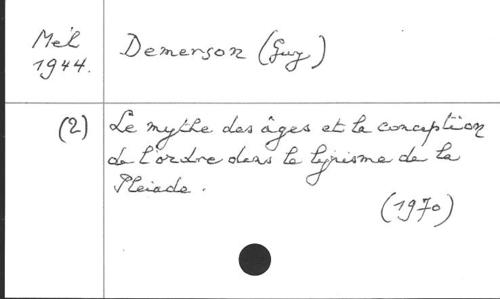 Mél
1944.
Demerson (Guy)
(2)
Le mythe des âges et la conception
de l'ordre dans le lyrisme de la
Pleiade.
(1970)